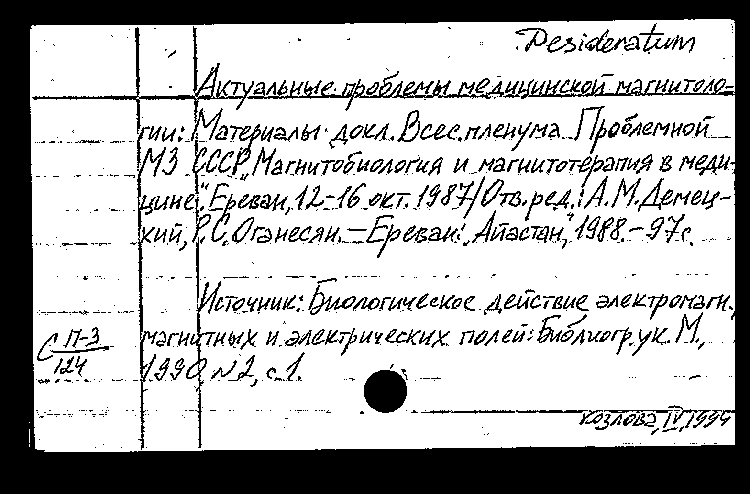 Desideratum
Актуальные проблемы медицинской магнитоло-
гии: Материалы докл. Всес. пленума Проблемной
МЗ СССР „Магнитобиология и магнитотерапия в меди-
цине“. Ереван, 12-16 окт. 1987/Отв. ред.: А.М. Демец-
кий, Р.С. Оганесян. — Ереван: „Айастан“, 1988. — 97с.
Источник: Биологическое действие электромагн.,
магнитных и электрических полей: Библиогр. ук. М.,
С П-3
124
1990, №2, с 1.
Козлова, IV, 1994